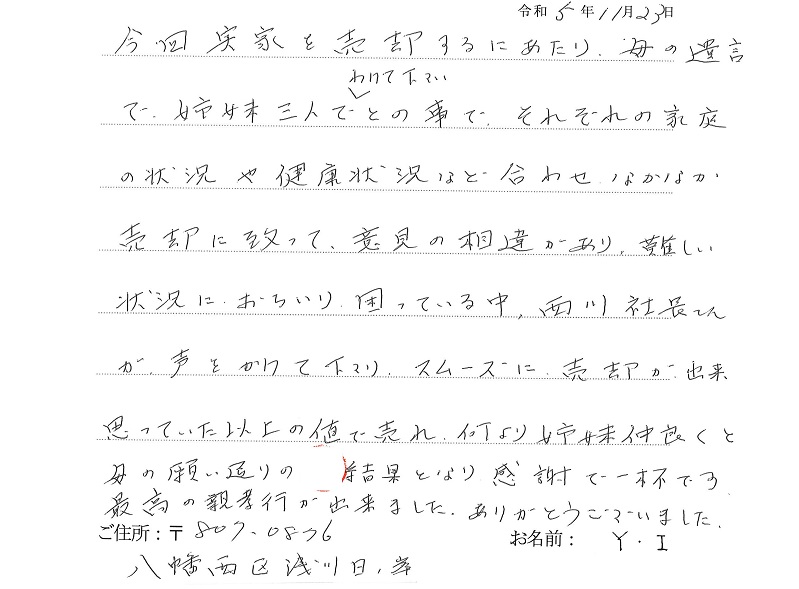 令和 5 年 11月 23日
今回 実家を売却するにあたり、母の遺言
わけて下さい
で、姉妹三人でとの事で、それぞれの家庭
の状況や健康状況など合わせ、なかなか
売却に致って、意見の相違があり、難しい
状況に、おちいり、困っている中、西川社長さん
が、声をかけて下さり、スムーズに、売却が、出来
思っていた以上の値で売れ、何より姉妹仲良くと
母の願い通りの 結果となり感謝で一杯です
最高の親孝行が出来ました。ありがとうございました。
ご住所：〒 807-0876 お名前： Y・I
八幡西区浅川日の峯